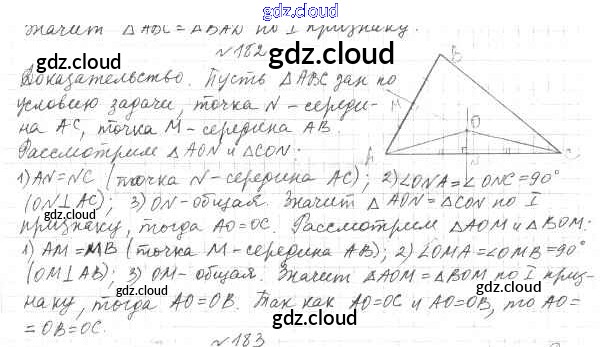 gdz.cloud
значит △ADC = △BAD по I признаку.
gdz.cloud gdz.cloud
№182
gdz.cloud
Доказательство. Пусть △ABC дан по
условию задачи, точка N - середи-
на AC, точка M - середина AB.
Рассмотрим △AON и △CON:
B
M
O
A N C
gdz.cloud gdz.cloud
1) AN=NC (точка N - середина AC); 2) ∠ONA=∠ONC=90°
(ON⊥AC); 3) ON - общая. Значит △AON=△CON по I
признаку, тогда AO=OC. Рассмотрим △AOM и △BOM:
gdz.cloud
1) AM=MB (точка M - середина AB); 2) ∠OMA=∠OMB=90°
(OM⊥AB); 3) OM - общая. Значит △AOM=△BOM по I приз-
gdz.cloud gdz.cloud
наку, тогда AO=OB. Так как AO=OC и AO=OB, то AO=
=OB=OC.
gdz.cloud
№183